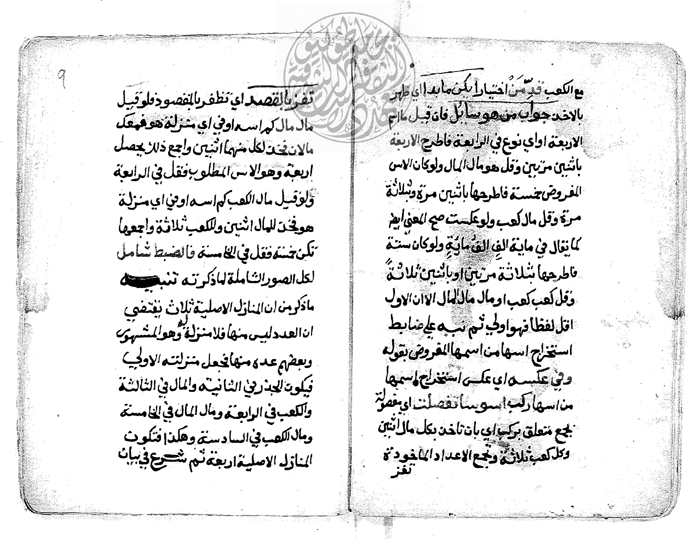 مع الكعب قدمن اختيارا يكن ما بدا اي ظهر
بالاخذ جواب من هو سائل فان قيل ما اسم
الاربعة او اي نوع في الرابعة فاطرح الاربعة
باثنين مرتين وقل هو مال المال ولو كان الاس
المفروض خمسة فاطرحها باثنين مرة وثلاثة
مرة وقل مال كعب ولو عكست صح المعني ايضا
كما يقال في ماية الف الف ماية ولو كان ستة
فاطرحها ثلاثة مرتين او باثنين ثلاثة
وقل كعب كعب او مال مال المال الا ان الاول
اقل لفظا فهو اولي ثم نبه علي ضابط
استخراج اسها من اسمها المفروض بقوله
وفي عكسه اي عكس استخراج اسمها
من اسها ركب اسوسا تفصلت اي مفصولة
بجمع متعلق بركب اي بان تاخذ بكل مال اثنين
وكل كعب ثلاثة وتجمع الاعداد الماخوذة
تفز
٩
تفز بالقصد اي تظفر بالمقصود فلو قيل
مال مال كم اسه او في اي منزلة هو فمعك
مالان فخذ لكل منهما اثنين واجمع ذلك يحصل
اربعة وهو الاس المطلوب فقل في الرابعة
ولو قيل مال الكعب كم اسه او في اي منزلة
هو فخذ للمال اثنين وللكعب ثلاثة واجمعها
تكن خمسة فقل في الخامسة فالضبط شامل
لكل الصور الشاملة لما ذكرته تنبيه
ما ذكر من ان المنازل الاصلية ثلاث يقتضي
ان العدد ليس منها فلا منزلة له وهو المشهور
وبعضهم عده منها فجعل منزلته الاولي
فيكون الجذر في الثانية والمال في الثالثة
والكعب في الرابعة ومال المال في الخامسة
ومال الكعب في السادسة وهكذا فتكون
المنازل الاصلية اربعة ثم شرع في بيان